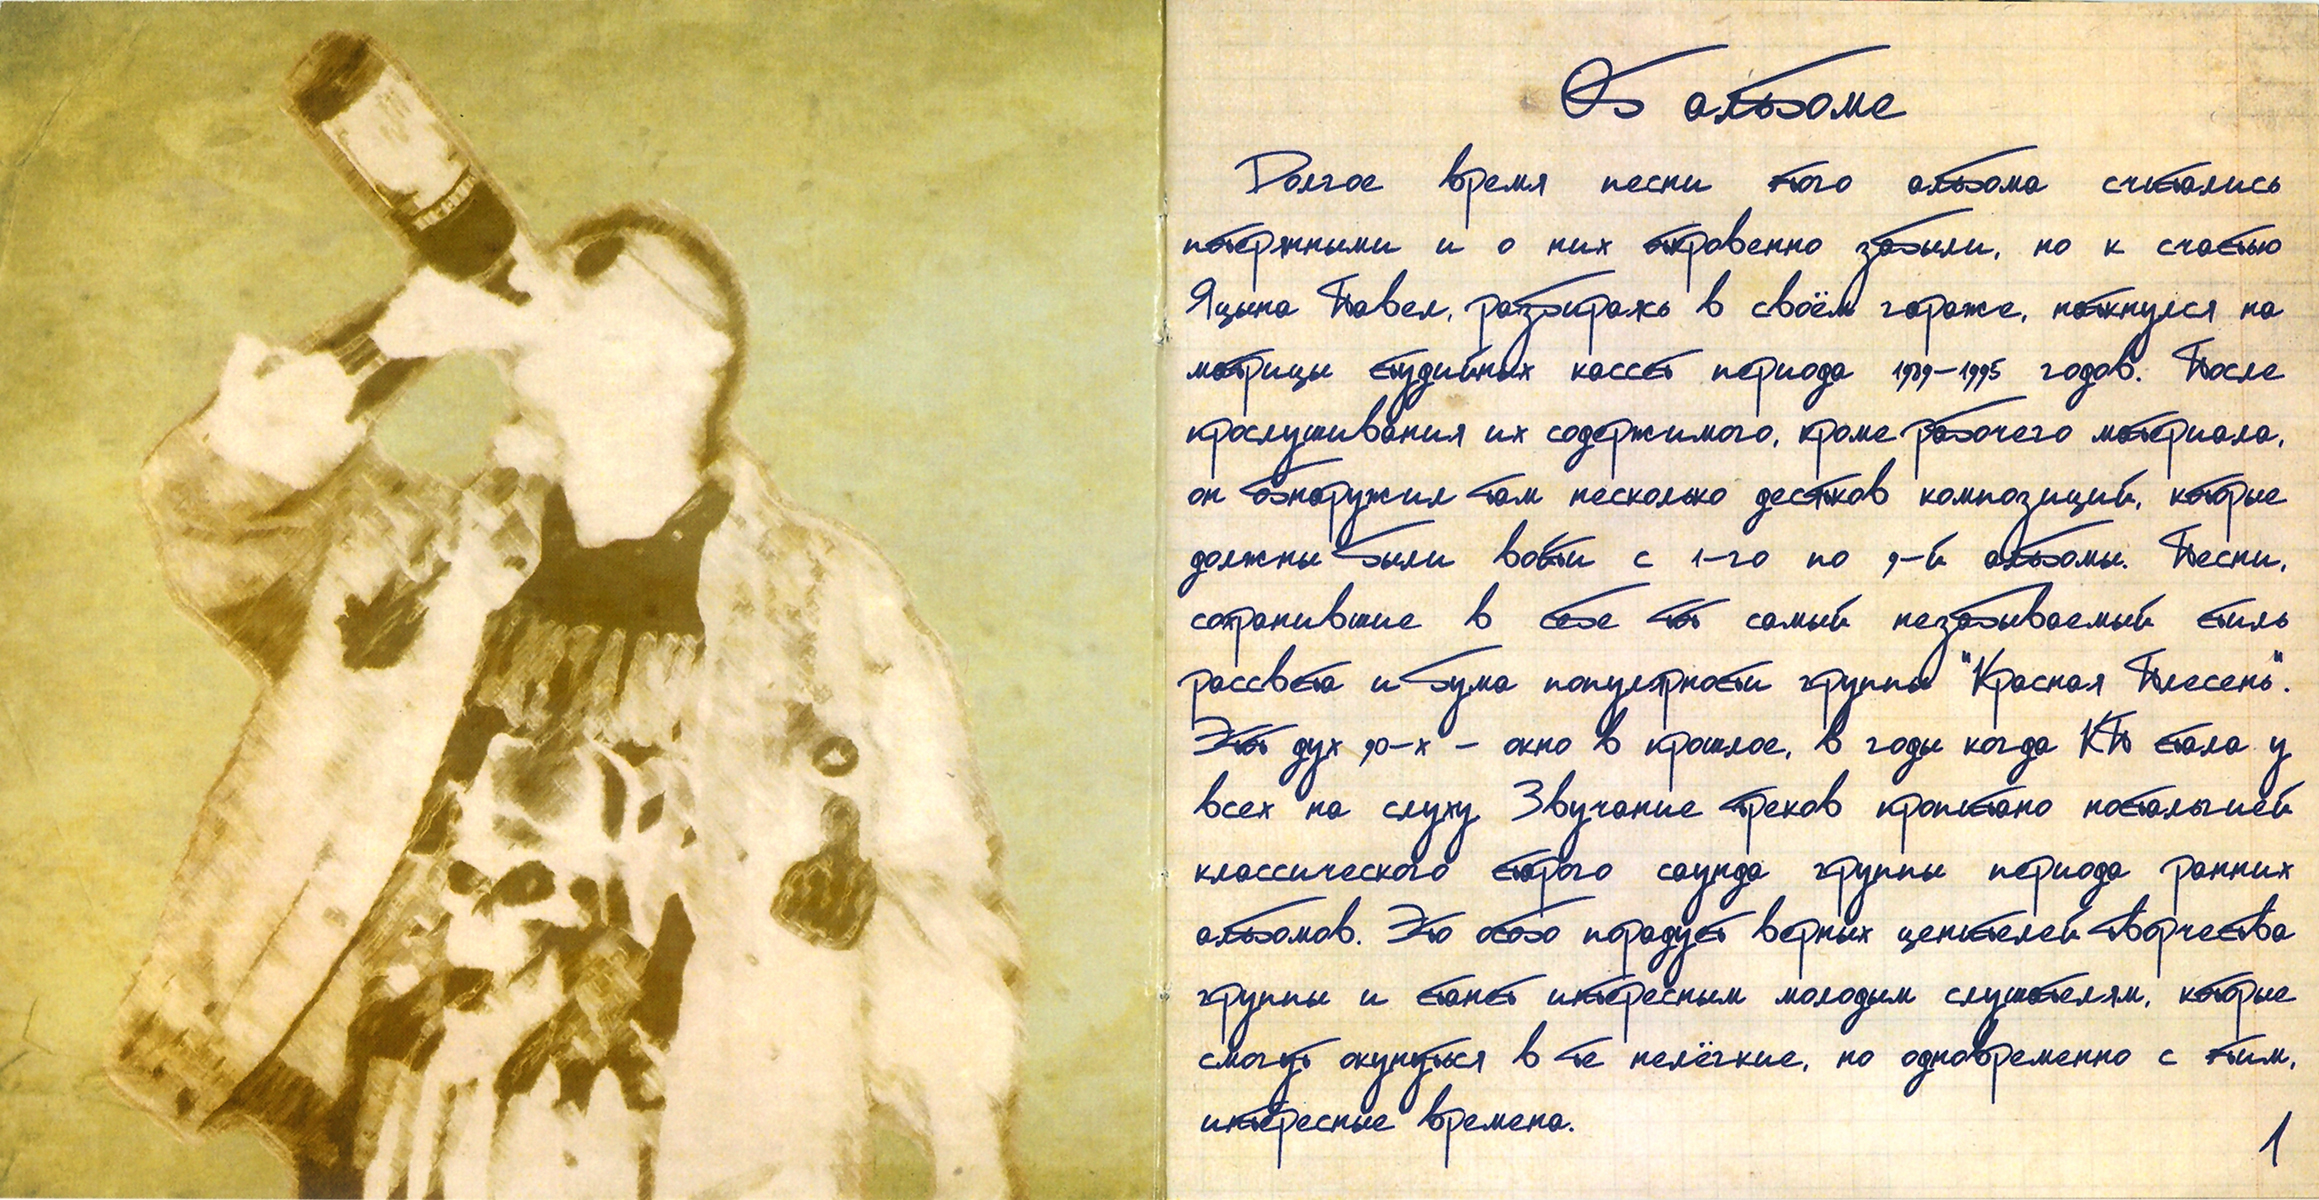 Об альбоме
Долгое время песни этого альбома считались
потеряными и о них откровенно забыли, но к счастью
Яцына Павел, разбираясь в своём гараже, наткнулся на
матрицы студийных кассет периода 1989-1995 годов. После
прослушивания их содержимого, кроме рабочего материала,
он обнаружил там несколько десятков композиций, которые
должны были войти с 1-го по 9-й альбомы. Песни,
сохранившие в себе тот самый незабываемый стиль
рассвета и бума популярности группы "Красная Плесень".
Этот дух 90-х - окно в прошлое, в годы когда КП стала у
всех на слуху. Звучание треков пропитано ностальгией
классического старого саунда группы периода ранних
альбомов. Это особо порадует верных ценителей творчества
группы и станет интересным молодым слушателям, которые
смогут окунуться в те нелёгкие, но одновременно с этим,
интересные времена.
1